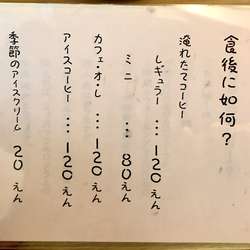 食後に如何？
淹れたてコーヒー
レギュラー…120えん
ミニ…80えん
カフェ・オ・レ…120えん
アイスコーヒー…120えん
季節のアイスクリーム 20えん